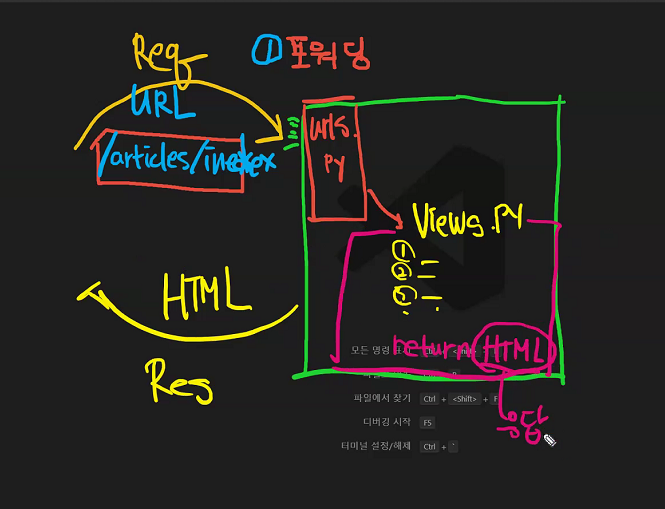 Req
① 포워딩
URL
/articles/index
urls.
py
views.py
①
②
③
HTML
return HTML
Res
응답
모든 명령 표시 Ctrl + <Shift> +
파일에서 찾기 Ctrl + <Shift> + F
디버깅 시작 F5
터미널 설정/해제 Ctrl + `